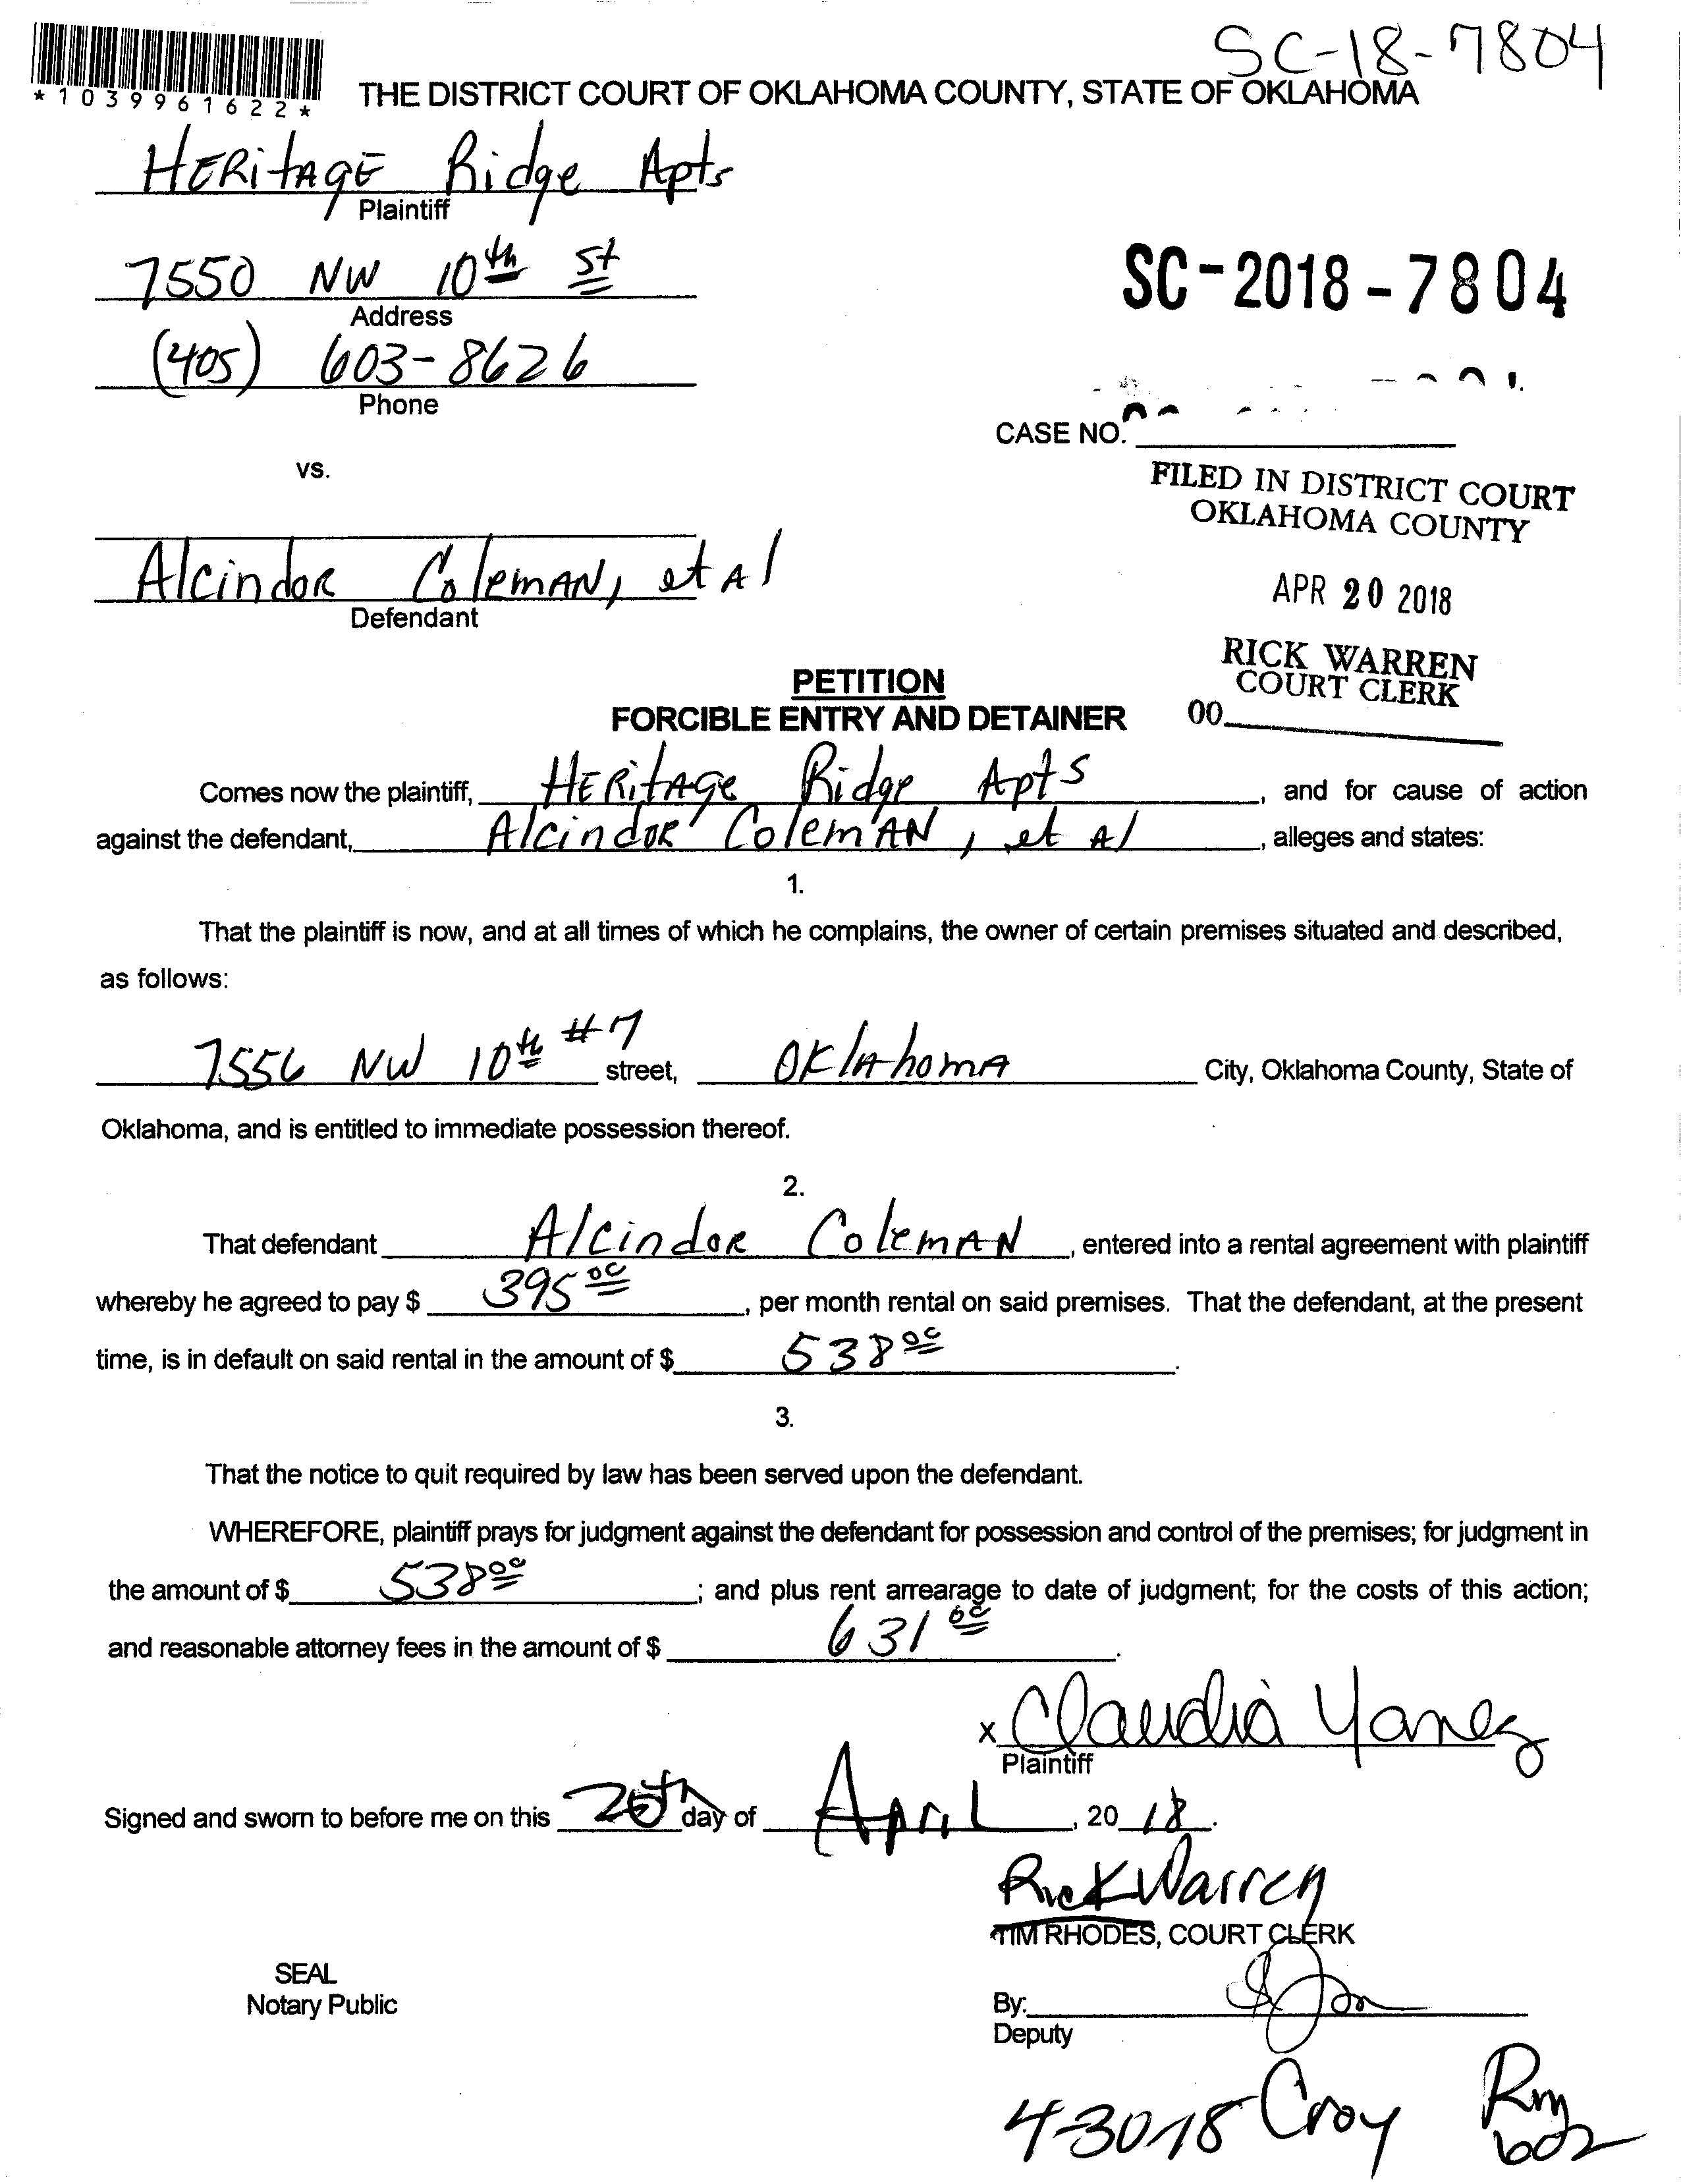 SC-18-7804
*1039961622*
THE DISTRICT COURT OF OKLAHOMA COUNTY, STATE OF OKLAHOMA
HERitAGE Ridge Apts
Plaintiff
7550 NW 10th St
Address
SC-2018-7804
(405) 603-8626
Phone
CASE NO.
vs.
FILED IN DISTRICT COURT
OKLAHOMA COUNTY
Alcindor Coleman, et al
Defendant
APR 20 2018
RICK WARREN
COURT CLERK
00
PETITION
FORCIBLE ENTRY AND DETAINER
Comes now the plaintiff, HERitAGe Ridge Apts, and for cause of action
against the defendant, Alcindor Coleman, et al, alleges and states:
1.
That the plaintiff is now, and at all times of which he complains, the owner of certain premises situated and described,
as follows:
7556 NW 10th #7 street, Oklahoma City, Oklahoma County, State of
Oklahoma, and is entitled to immediate possession thereof.
2.
That defendant Alcindor Coleman, entered into a rental agreement with plaintiff
whereby he agreed to pay $ 395 00, per month rental on said premises. That the defendant, at the present
time, is in default on said rental in the amount of $ 538 00.
3.
That the notice to quit required by law has been served upon the defendant.
WHEREFORE, plaintiff prays for judgment against the defendant for possession and control of the premises; for judgment in
the amount of $ 538 00; and plus rent arrearage to date of judgment; for the costs of this action;
and reasonable attorney fees in the amount of $ 631 00.
x Claudia Yanez
Plaintiff
Signed and sworn to before me on this 20th day of April, 20 18.
Rick Warren
TIM RHODES, COURT CLERK
SEAL
Notary Public
By:
Deputy
4-30-18 Croy Rm
602